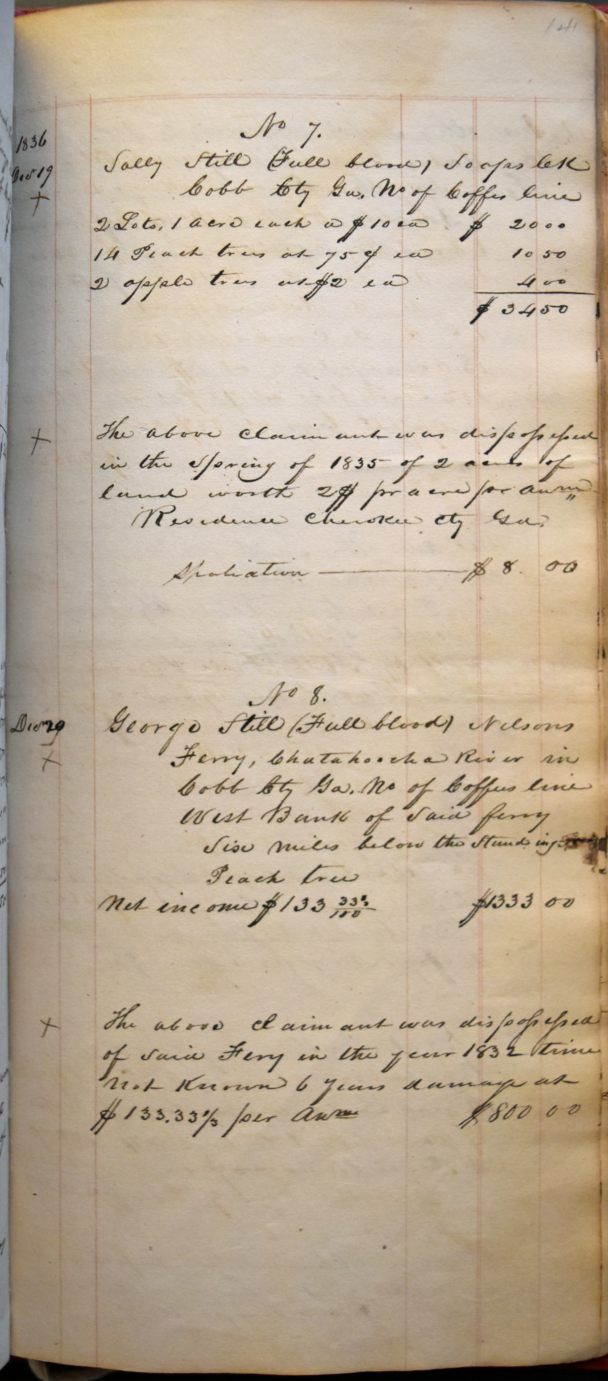 141
No 7.
1836
Decr 19 Sally Still (Full blood) Soaps Ck
+ Cobb Cty Ga. No of Coffes line
2 Lots, 1 acre each a $10 ea $ 20 00
14 Peach trees at 75¢ ea 10 50
2 apple trees at $2 ea 4 00
$ 34 50
+ The above claimant was dispossessed
in the Spring of 1835 of 2 acres of
land worth 2$ pr acre pr Anm
Residence Cherokee Cty Ga.
Spoliation $ 8. 00
No 8.
Decr 29 George Still (Full blood) Nelsons
+ Ferry, Chatahoocha River in
Cobb Cty Ga. No of Coffees line
West Bank of Said ferry
Six miles below the Standing
Peach tree
Net income $133 33⅓/100 $1333 00
+ The above claimant was dispossessed
of Said Fery in the year 1832 time
not Known 6 years damage at
$133.33⅓ per Anm $800 00